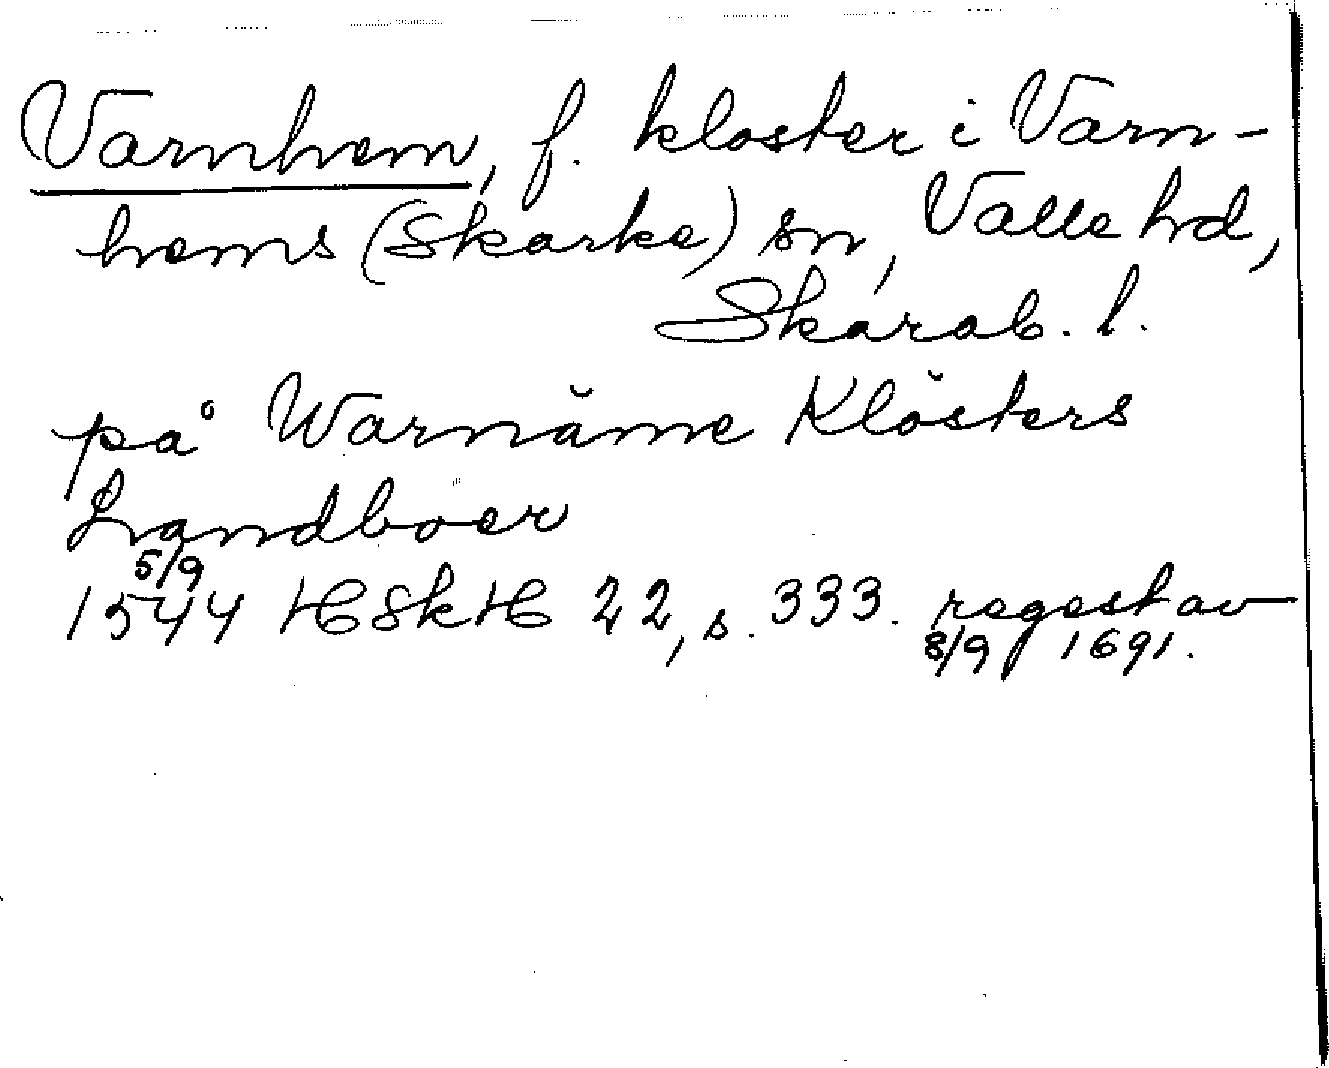 Varnhem, f. kloster i Varn-
hems (Skarke) sn, Valle hd,
Skarab. l.
på Warnäme Klösters
Landboer
1544 5/9 HSkH 22, s. 333. regest av
8/9 1691.